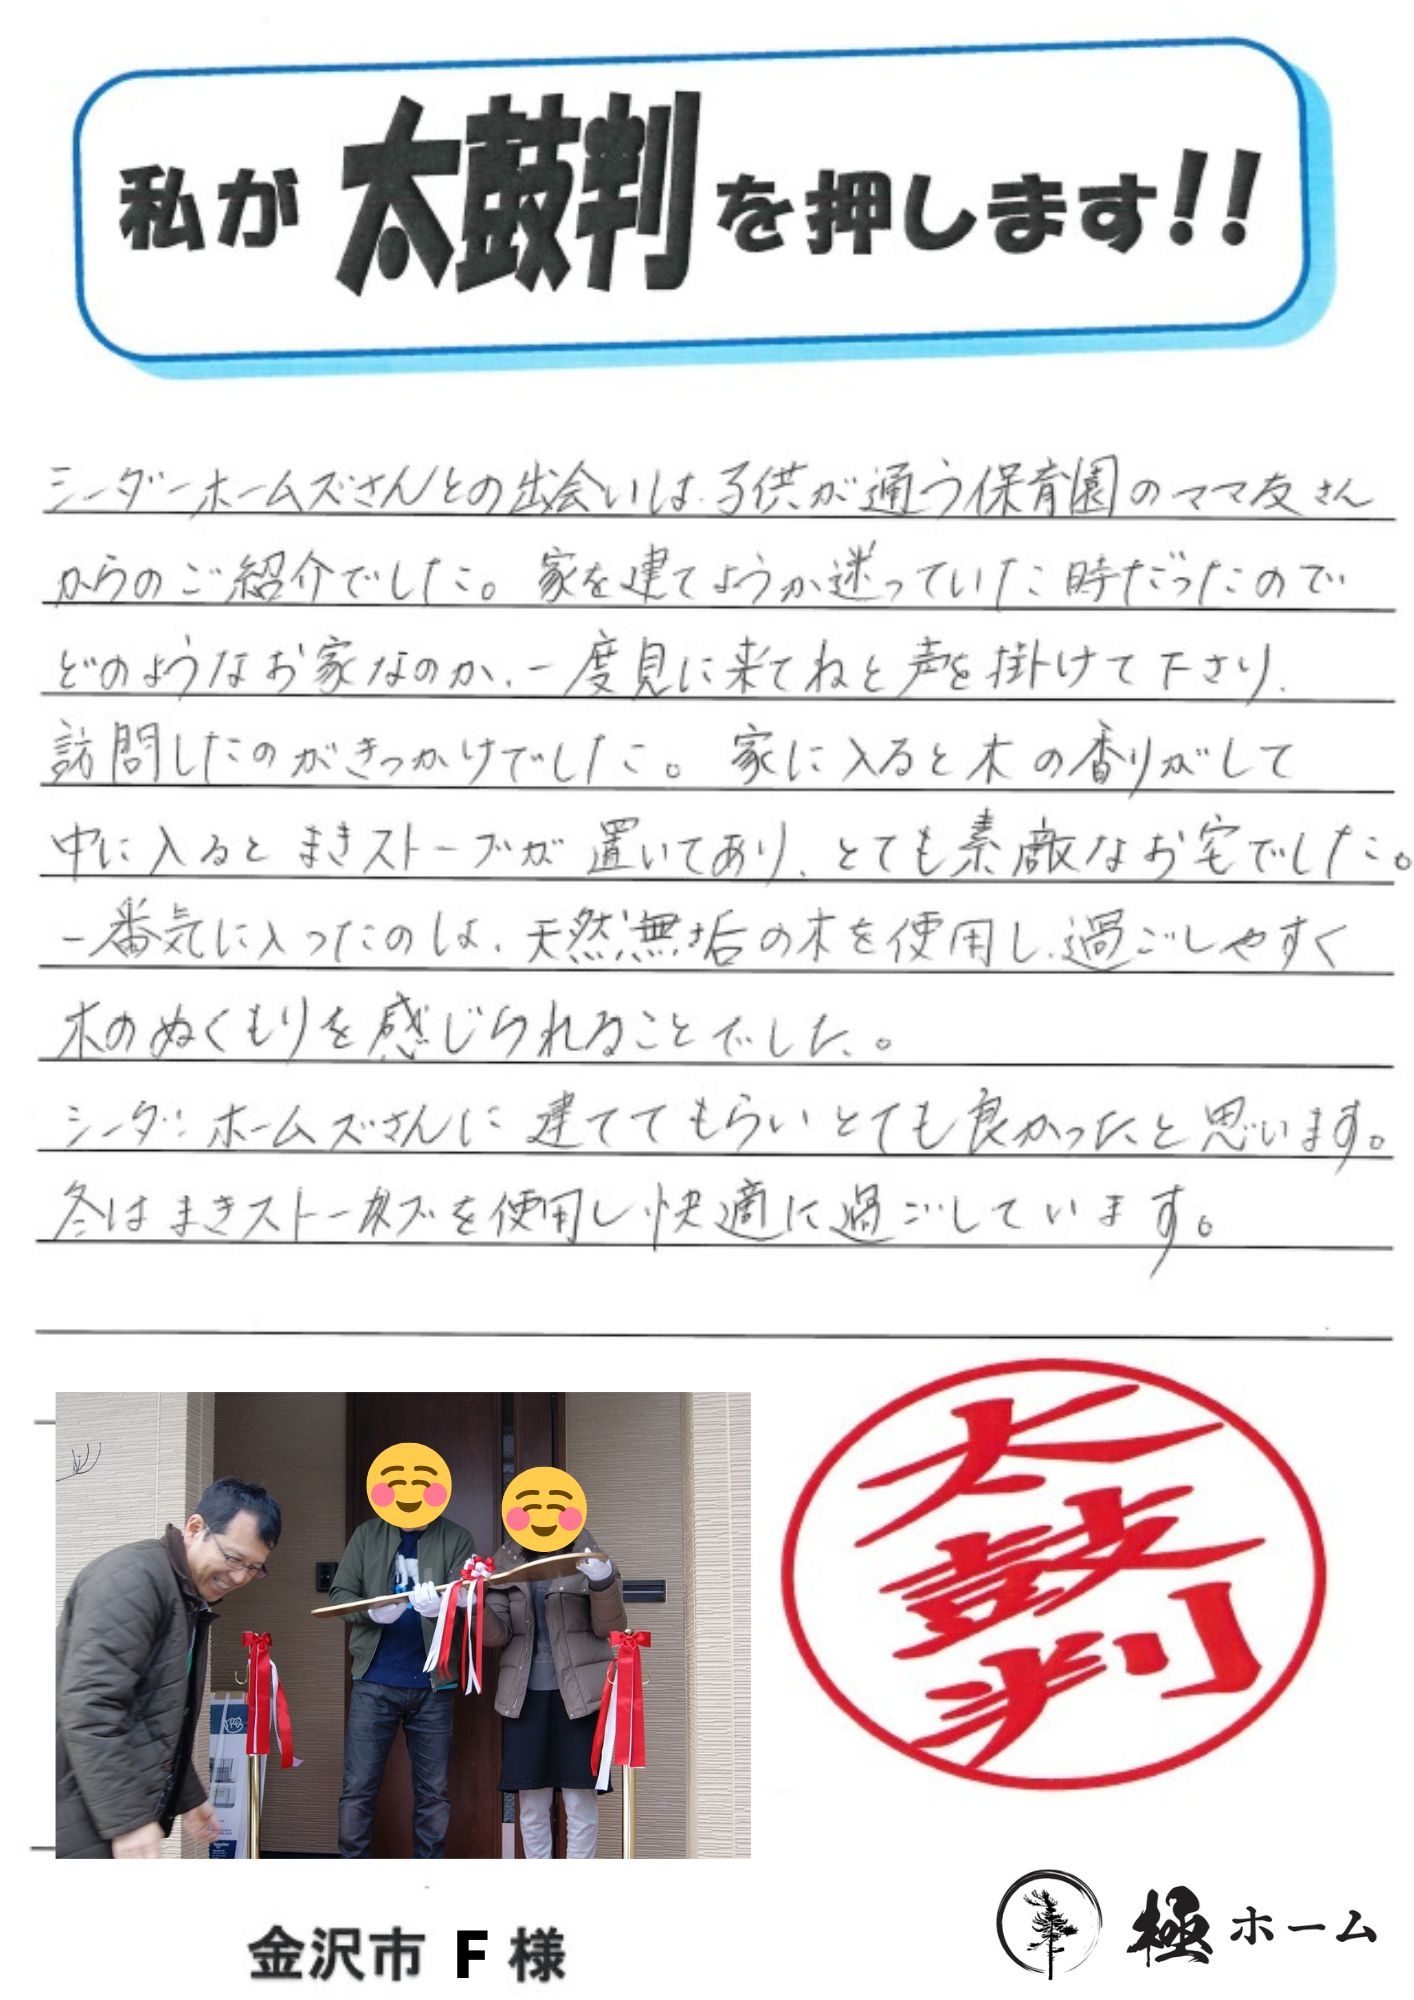 私が太鼓判を押します!!
シーダーホームズさんとの出会いは、子供が通う保育園のママ友さん
からのご紹介でした。家を建てようか迷っていた時だったので
どのようなお家なのか、一度見に来てねと声を掛けて下さり、
訪問したのがきっかけでした。家に入ると木の香りがして
中に入るとまきストーブが置いてあり、とても素敵なお宅でした。
一番気に入ったのは、天然無垢の木を使用し、過ごしやすく
木のぬくもりを感じられることでした。
シーダーホームズさんに建ててもらいとても良かったと思います。
冬はまきストーブを使用し快適に過ごしています。
太鼓判
金沢市 F 様
極ホーム